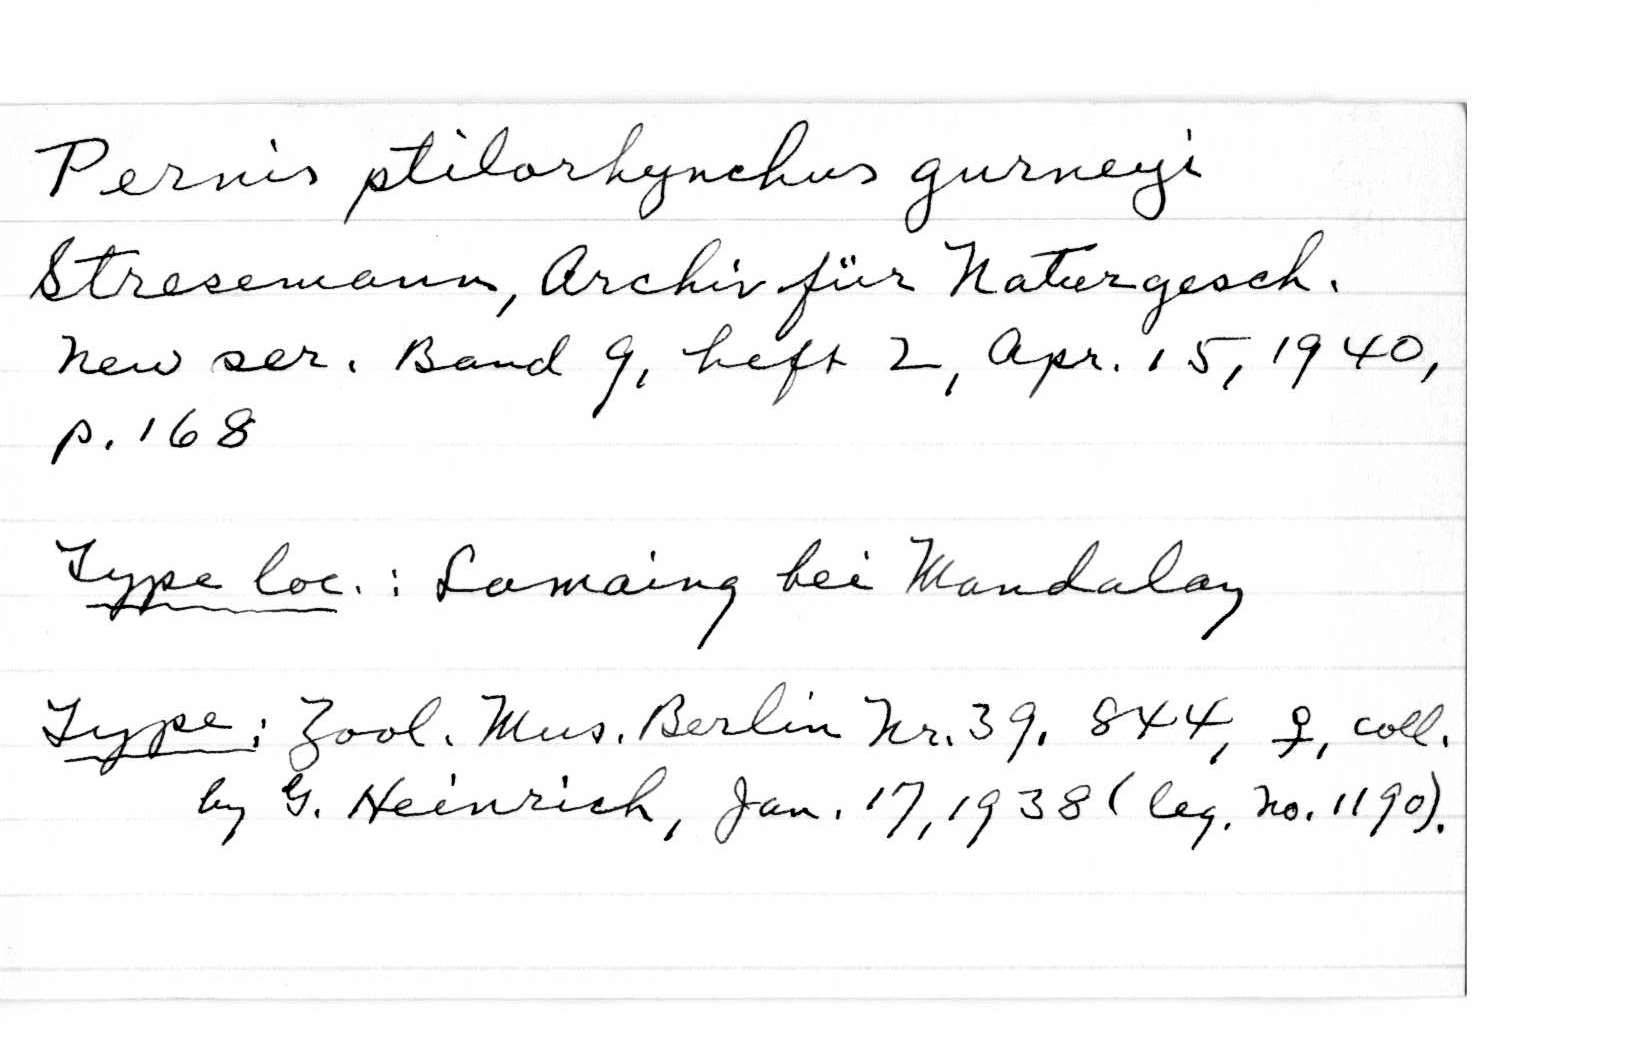 Pernis ptilorhynchus gurneyi
Stresemann, Archiv für Naturgesch.
New ser. Band 9, heft 2, Apr. 15, 1940,
p. 168
Type loc.: Lamaing bei Mandalay
Type: Zool. Mus. Berlin Nr. 39. 844, ♀, coll.
by G. Heinrich, Jan. 17, 1938 (leg. no. 1190).